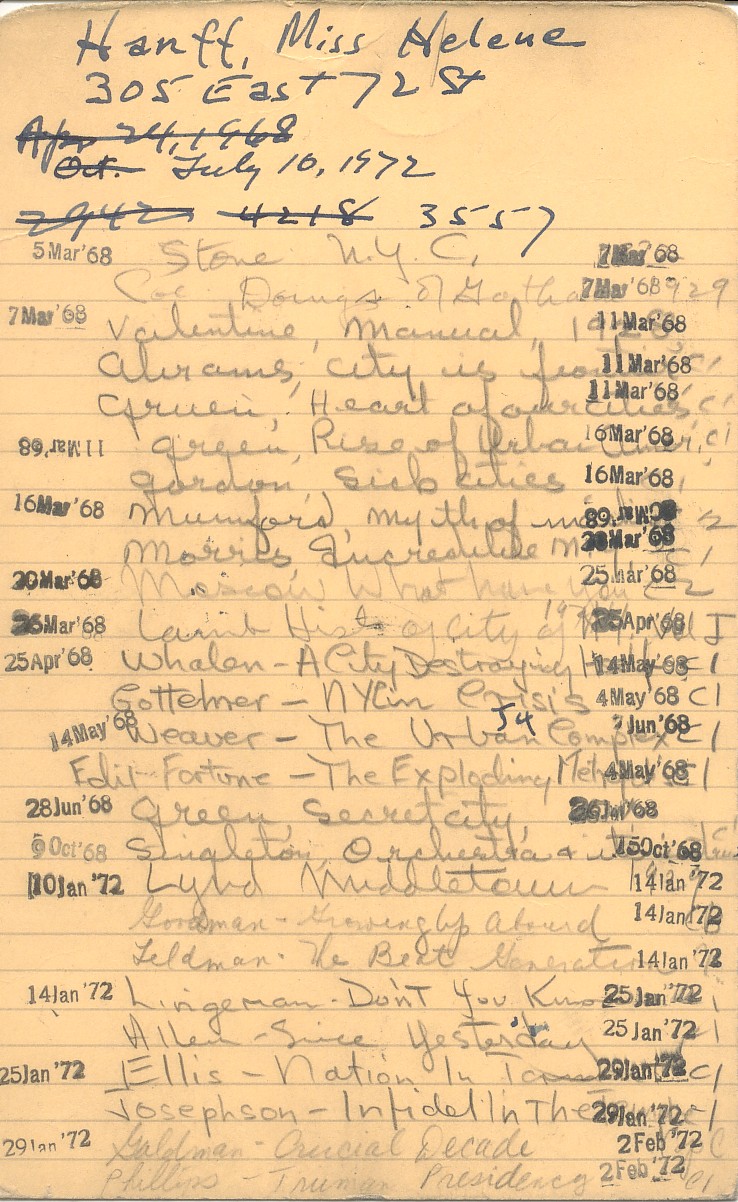 Hanff, Miss Helene
305 East 72 St
Apr 24, 1968
Oct. July 10, 1972
2942 4218 3557
5 Mar '68 Stone N.Y.C. 7 Mar '68
Doings of Gotham 7 Mar '68 1929
7 Mar '68 Valentine, Manual, 1928 11 Mar '68
Abrams, City is 11 Mar '68 C1
Gruen, Heart of our cities 11 Mar '68 C1
11 Mar '68 Green, Rise of Urban Amer. 16 Mar '68 C1
Gordon, Sick cities 16 Mar '68
16 Mar '68 Mumford, Myth of 20 Mar '68 2
Morris, Incredible 20 Mar '68
20 Mar '68 Moscow What have you 25 Mar '68 C2
26 Mar '68 Lamb Hist of City of N.Y. Vol I 25 Apr '68
25 Apr '68 Whalen - A City Destroying 14 May '68 C1
Gottehrer - NY in Crisis 4 May '68 C1
14 May '68 Weaver - The Urban Complex J4 7 Jun '68 C1
Edit. Fortune - The Exploding Metropolis 4 May '68 C1
28 Jun '68 Green, Secret city, 26 Jul '68
9 Oct '68 Singleton, Orchestra & its 15 Oct '68
10 Jan '72 Lynd Middletown 14 Jan '72
Goodman - Growing Up Absurd 14 Jan '72
Feldman - The Beat Generation 14 Jan '72
14 Jan '72 Lingeman - Don't You Know 25 Jan '72
Allen - Since Yesterday 25 Jan '72 C1
25 Jan '72 Ellis - Nation In 29 Jan '72 C1
Josephson - Infidel In The Temple 29 Jan '72 C1
29 Jan '72 Goldman - Crucial Decade 2 Feb '72 C
Phillips - Truman Presidency 2 Feb '72 C1